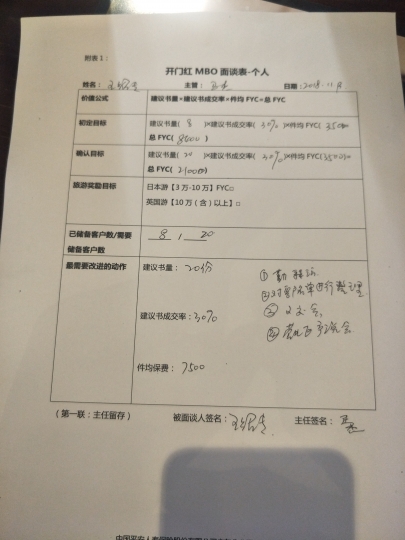 附表1：
开门红 MBO 面谈表-个人
姓名： 主管： 日期：2018.11.8
价值公式 建议书量×建议书成交率×件均 FYC=总 FYC
初定目标 建议书量( 8 )×建议书成交率( 30% )×件均 FYC( 3500
总 FYC( 8000 )
确认目标 建议书量( 20 )×建议书成交率( 30% )×件均 FYC( 3500
总 FYC( 21000 )
旅游奖励目标 日本游【3 万-10 万】FYC□
英国游【10 万（含）以上】□
已储备客户数/需要储备客户数 8 / 20
最需要改进的动作 建议书量：20份
建议书成交率：30%
件均保费：7500
① 勤
② 对客户名单进行整理
③
④
（第一联：主任留存） 被面谈人签名： 主任签名：